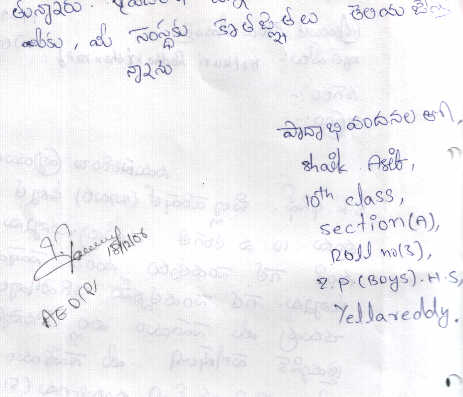 తున్నారు.
మీకు, మీ సంస్థకు కృతజ్ఞతలు తెలియ
న్నాను
పాదాభివందనల తో,
Shaik. Asif,
10th class,
section(A),
Roll no(3),
Z.P.(Boys).H.S,
Yellareddy.
18/12/06